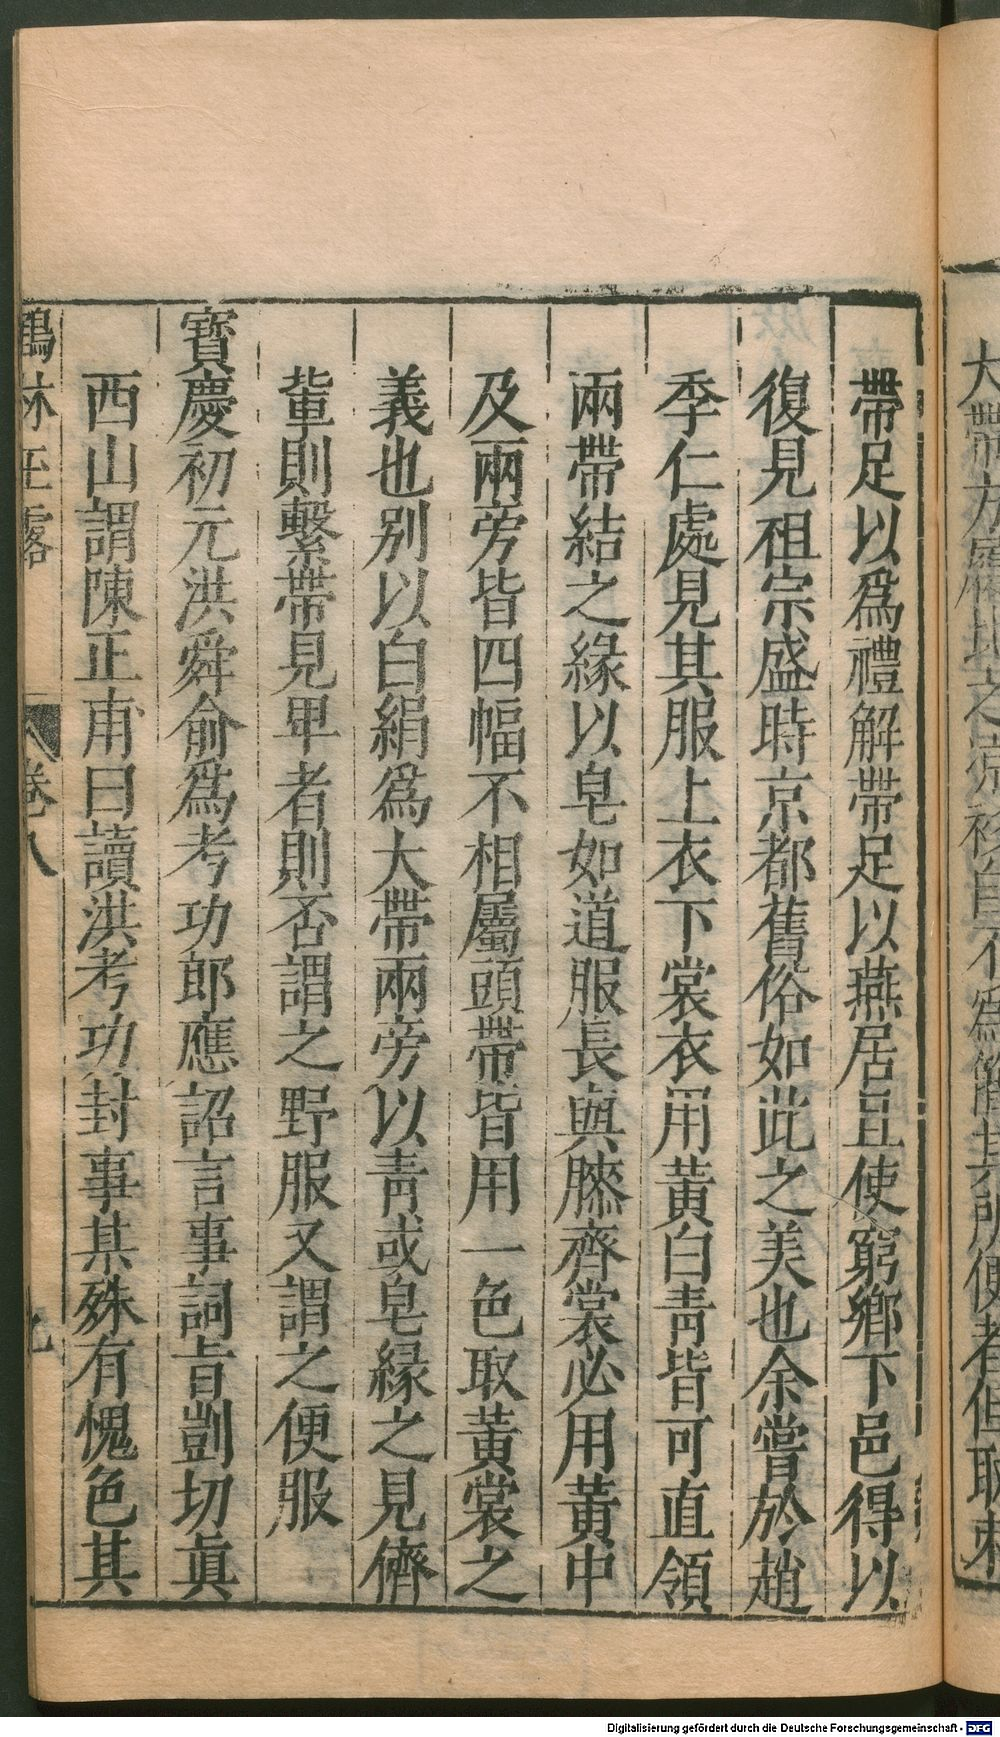 帶足以爲禮解帶足以燕居且使窮鄉下邑得以
復見祖宗盛時京都舊俗如此之美也余嘗於趙
季仁處見其服上衣下裳衣用黃白青皆可直領
兩帶結之緣以皂如道服長與膝齊裳必用黃中
及兩旁皆四幅不相屬頭帶皆用一色取黃裳之
義也別以白絹爲大帶兩旁以青或皂緣之見儕
輩則繫帶見卑者則否謂之野服又謂之便服
寶慶初元洪舜俞爲考功郎應詔言事詞旨剴切眞
西山謂陳正甫曰讀洪考功封事某殊有愧色其
鶴林玉露
卷八
Digitalisierung gefördert durch die Deutsche Forschungsgemeinschaft - DFG